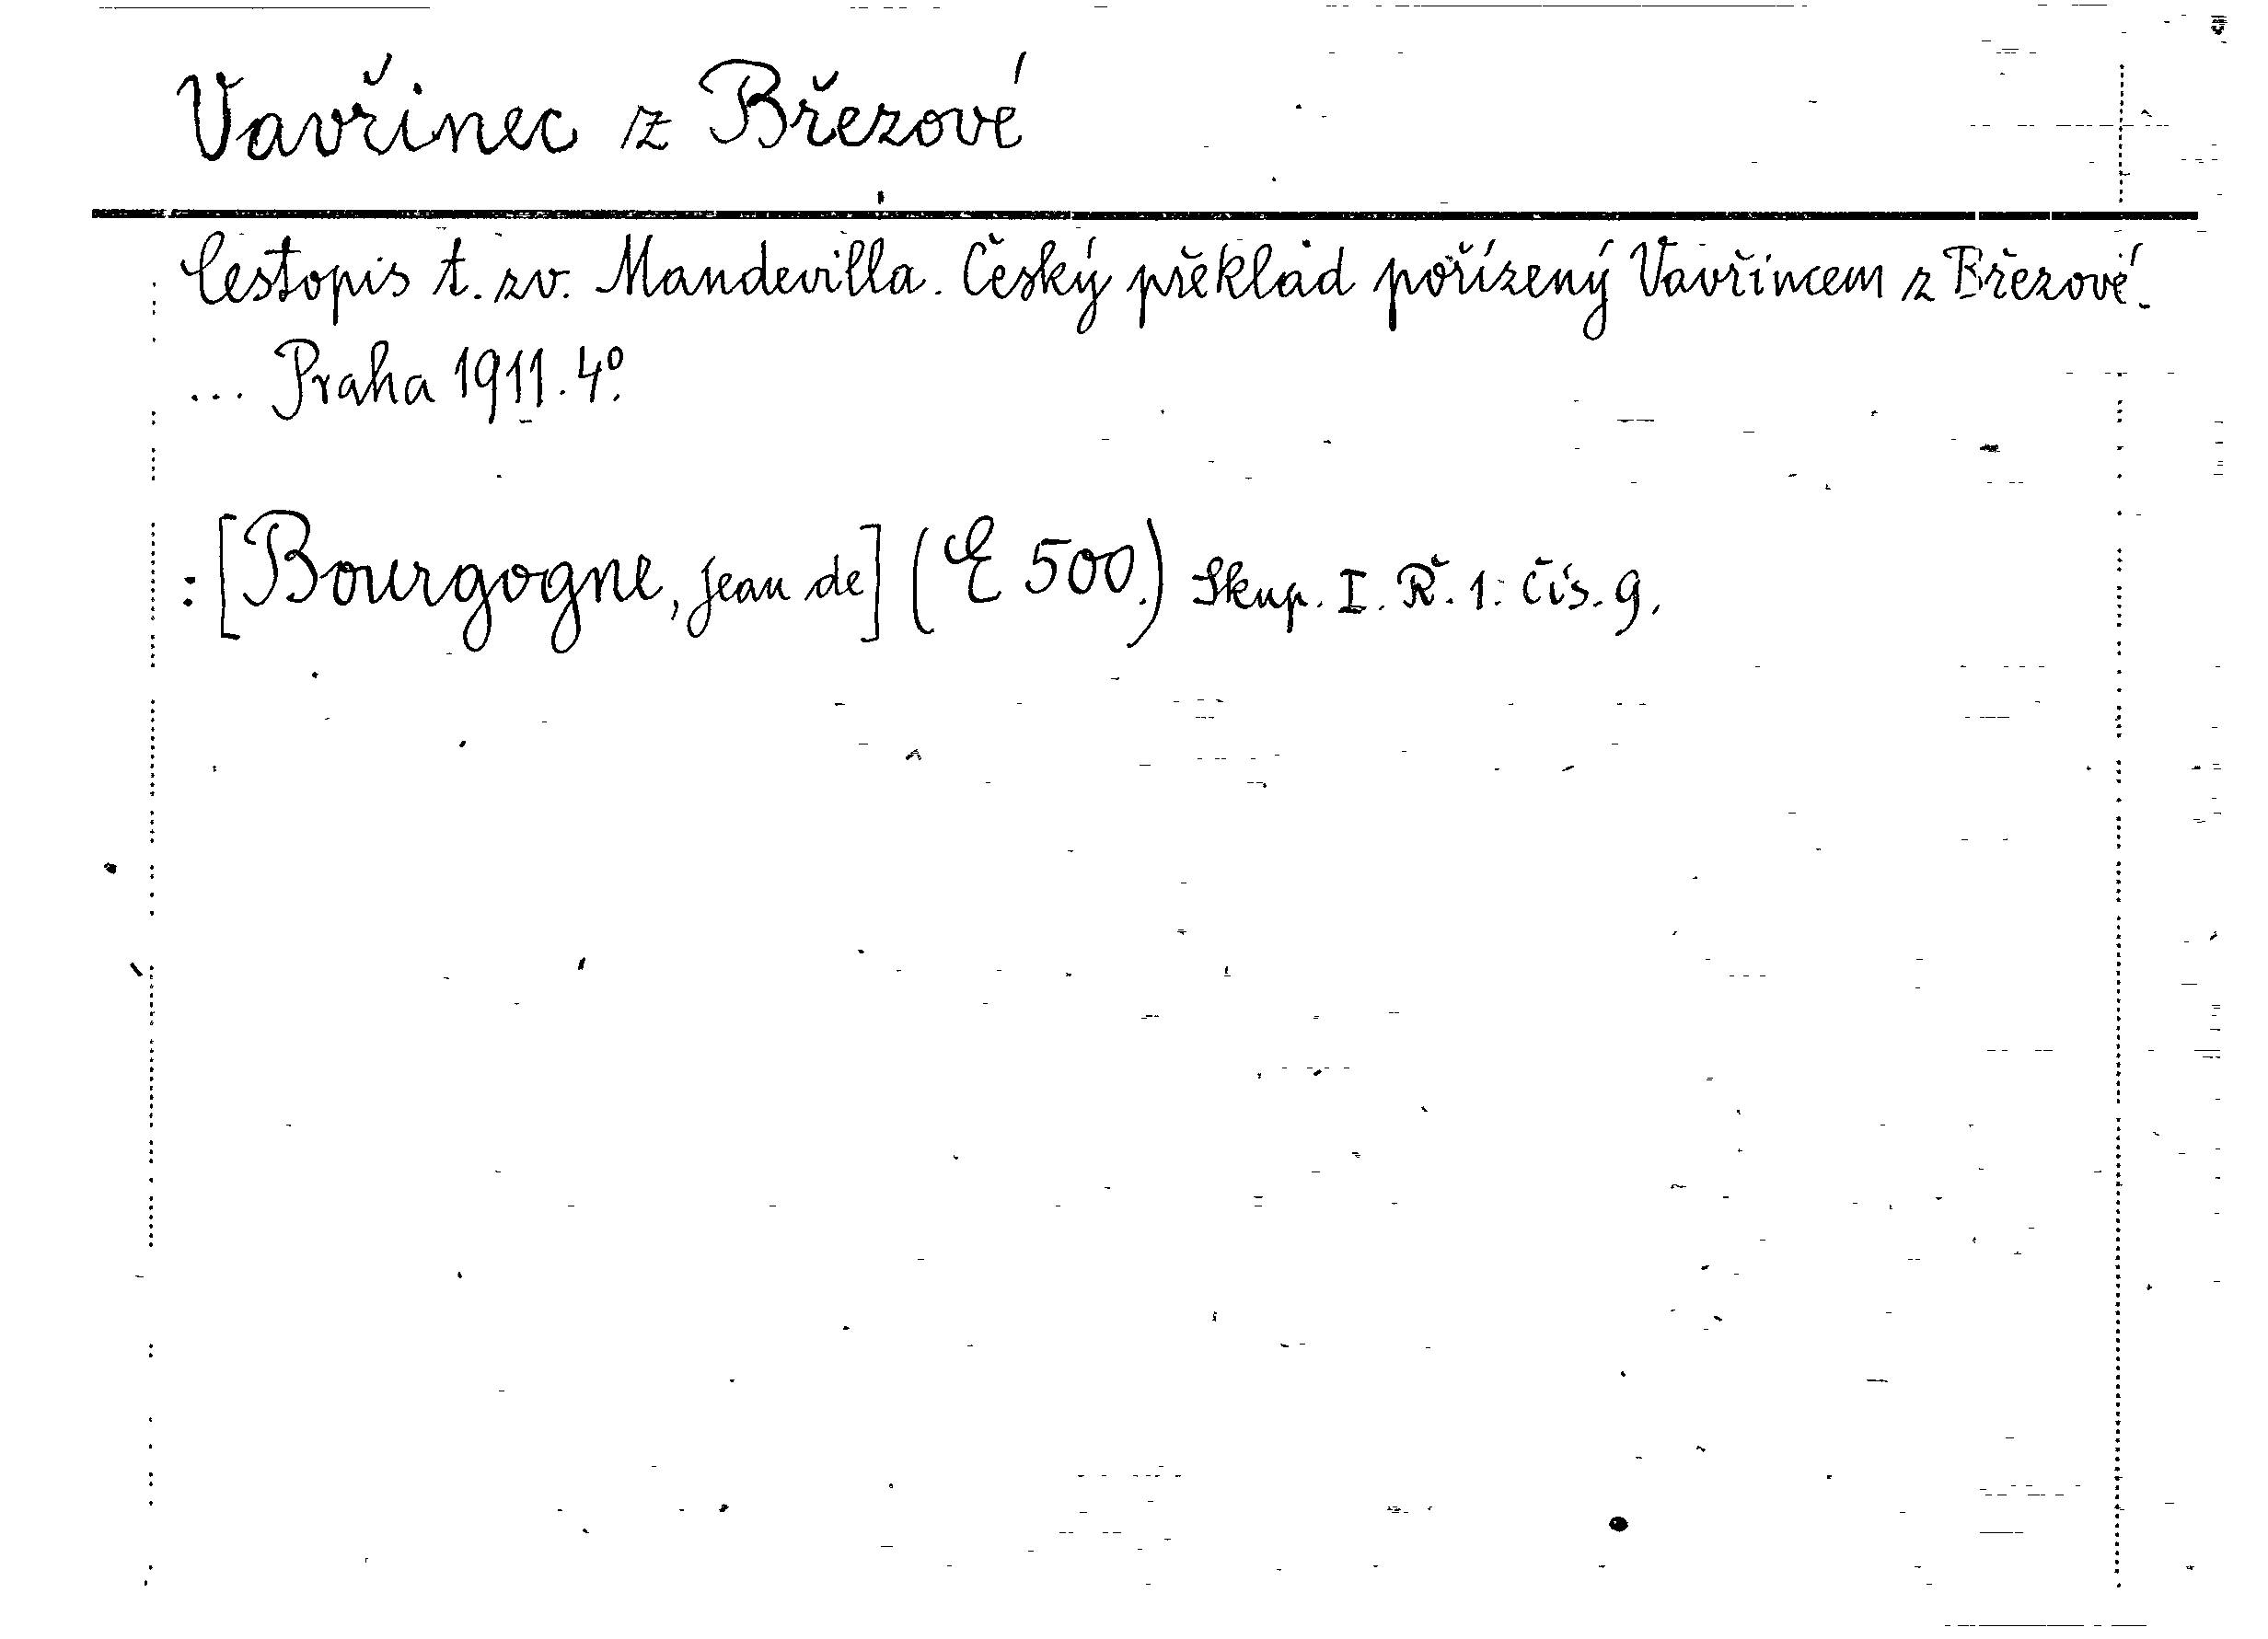 Vavřinec z Březové
Cestopis t. zv. Mandevilla. Český překlad pořízený Vavřincem z Březové.
... Praha 1911. 4º.
: [Bourgogne, Jean de] (E 500.) Skup. I. Ř. 1. Čís. 9.